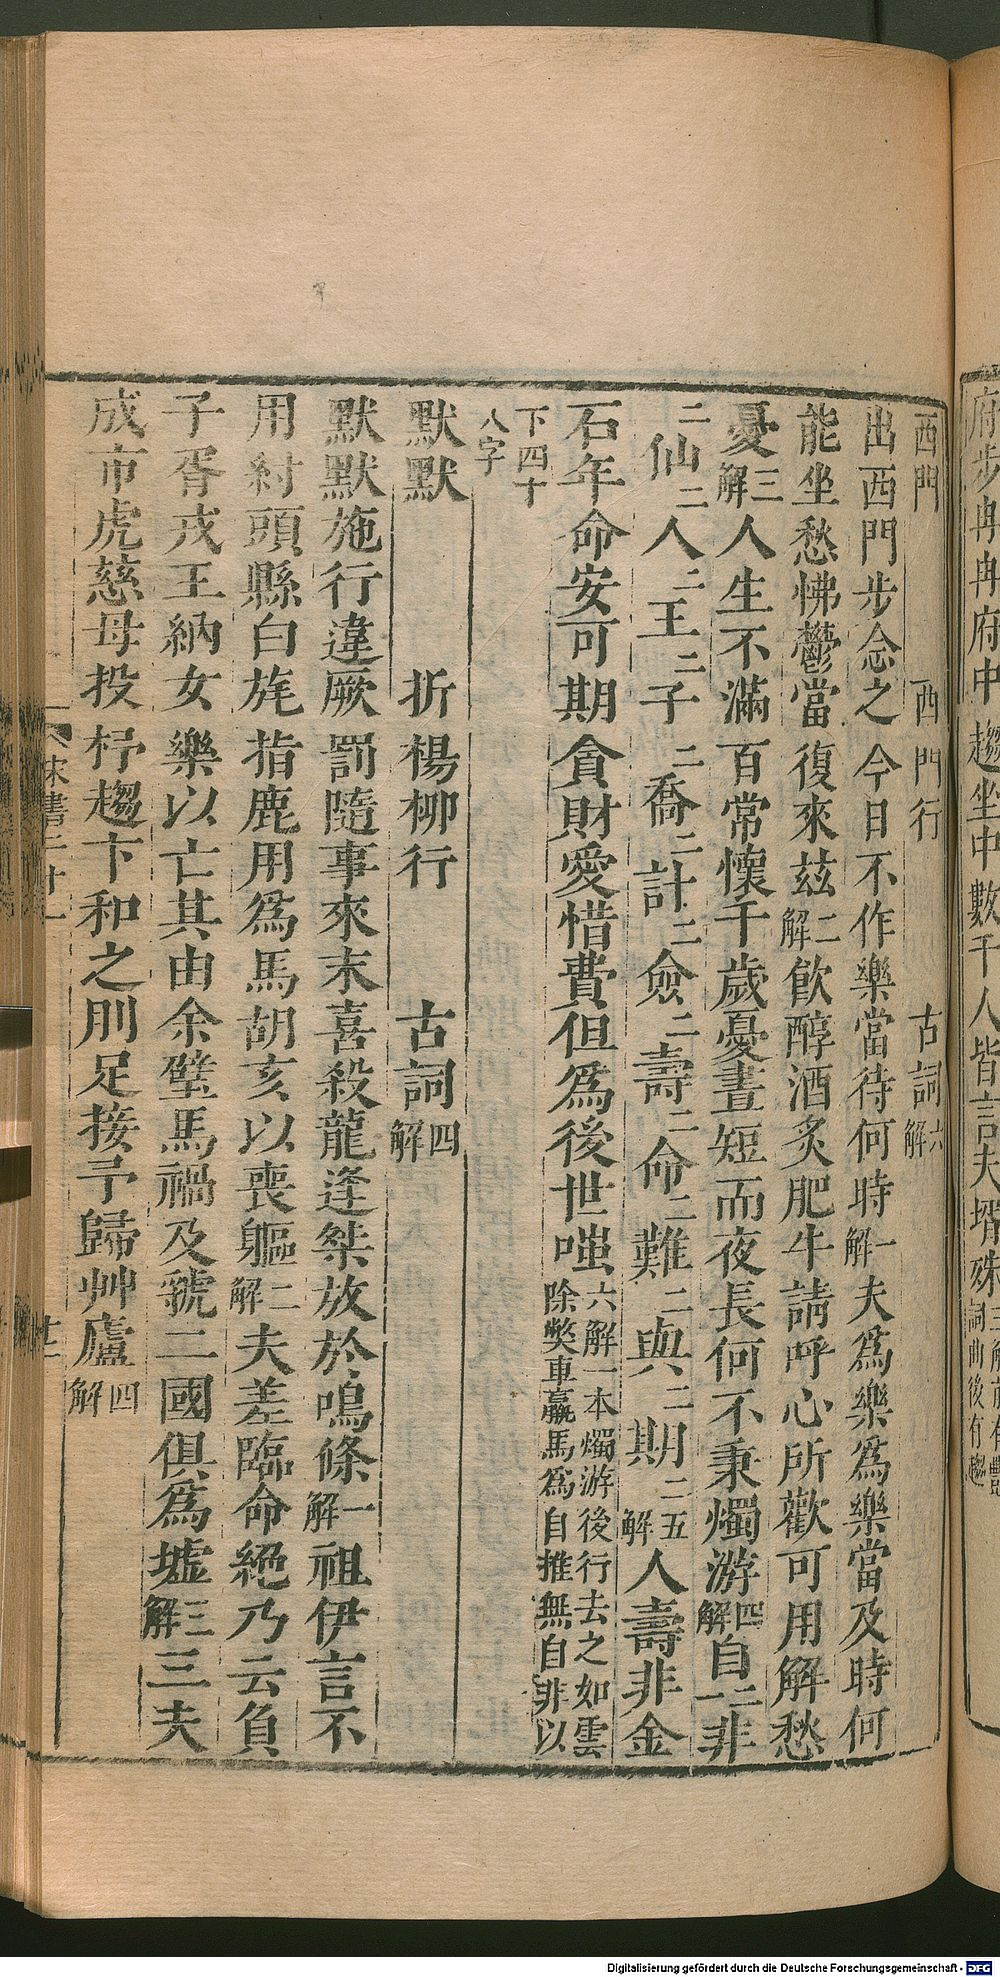 府步冉冉府中趨坐中數千人皆言夫壻殊
西門　西門行　古詞六解
出西門步念之今日不作樂當待何時一解夫爲樂爲樂當及時何
能坐愁怫鬱當復來茲二解飲醇酒炙肥牛請呼心所歡可用解愁
憂三解人生不滿百常懷千歲憂晝短而夜長何不秉燭游四解自二非
二仙二人二王二子二喬二計二僉二壽二命二難二與二期二五解人壽非金
石年命安可期貪財愛惜費但爲後世嗤六解一本燭游後行去之如雲除獘車羸馬爲自推無自非以
下四十八字
默默　折楊柳行　古詞四解
默默施行違厥罰隨事來末喜殺龍逢桀放於鳴條一解祖伊言不
用紂頭縣白旄指鹿用爲馬胡亥以喪軀二解夫差臨命絕乃云負
子胥戎王納女樂以亡其由余璧馬禍及虢二國俱爲墟三解三夫
成市虎慈母投杼趨卞和之刖足接予歸艸廬四解
宋書二十一
Digitalisierung gefördert durch die Deutsche Forschungsgemeinschaft - DFG